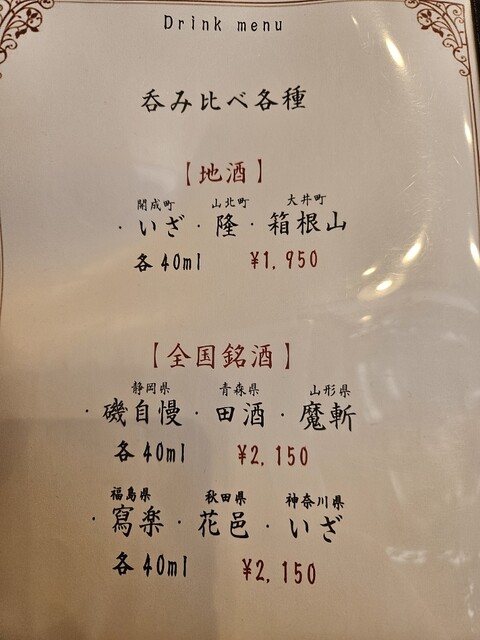 Drink menu
呑み比べ各種
【地酒】
開成町 山北町 大井町
・いざ・隆・箱根山
各40ml ¥1,950
【全国銘酒】
静岡県 青森県 山形県
・磯自慢・田酒・魔斬
各40ml ¥2,150
福島県 秋田県 神奈川県
・寫楽・花邑・いざ
各40ml ¥2,150